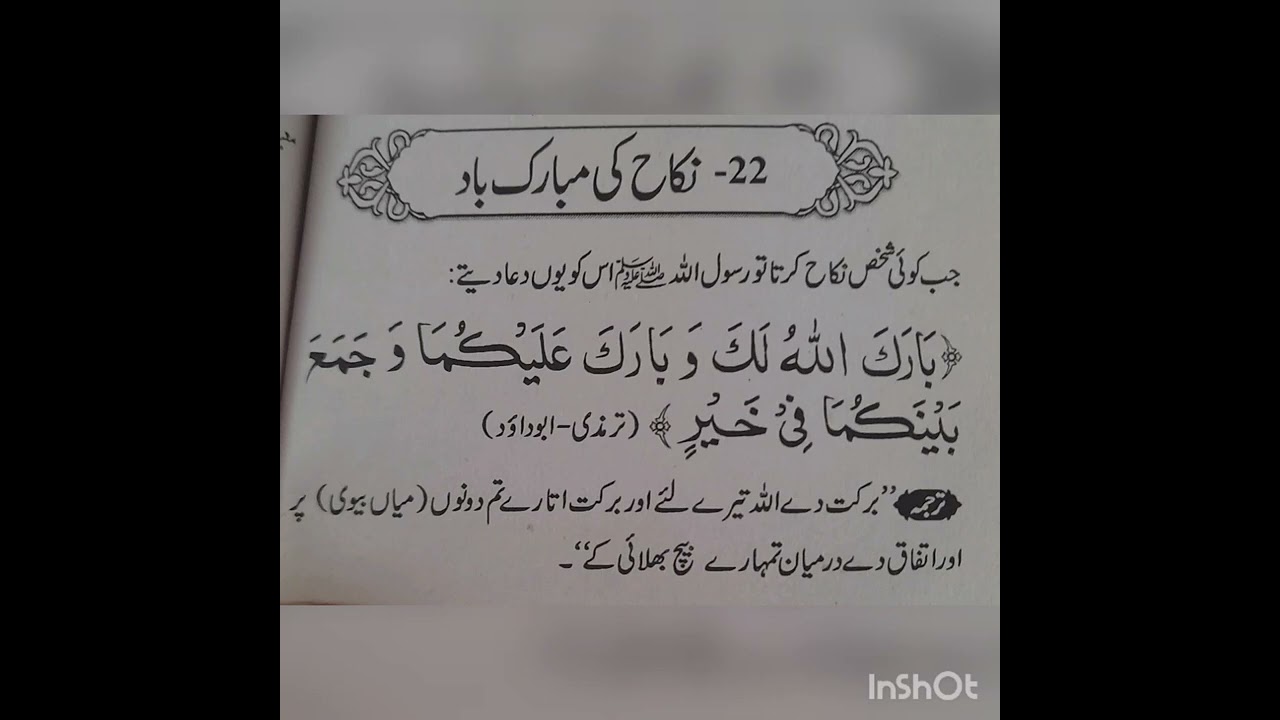 22- نکاح کی مبارک باد
جب کوئی شخص نکاح کرتا تو رسول اللہ ﷺ اس کو یوں دعا دیتے:
﴿بَارَكَ اللهُ لَكَ وَ بَارَكَ عَلَيْكُمَا وَ جَمَعَ
بَيْنَكُمَا فِيْ خَيْرٍ﴾ (ترمذی-ابوداؤد)
ترجمہ ’’برکت دے اللہ تیرے لئے اور برکت اتارے تم دونوں (میاں بیوی) پر
اور اتفاق دے درمیان تمہارے بیچ بھلائی کے‘‘۔
InShOt